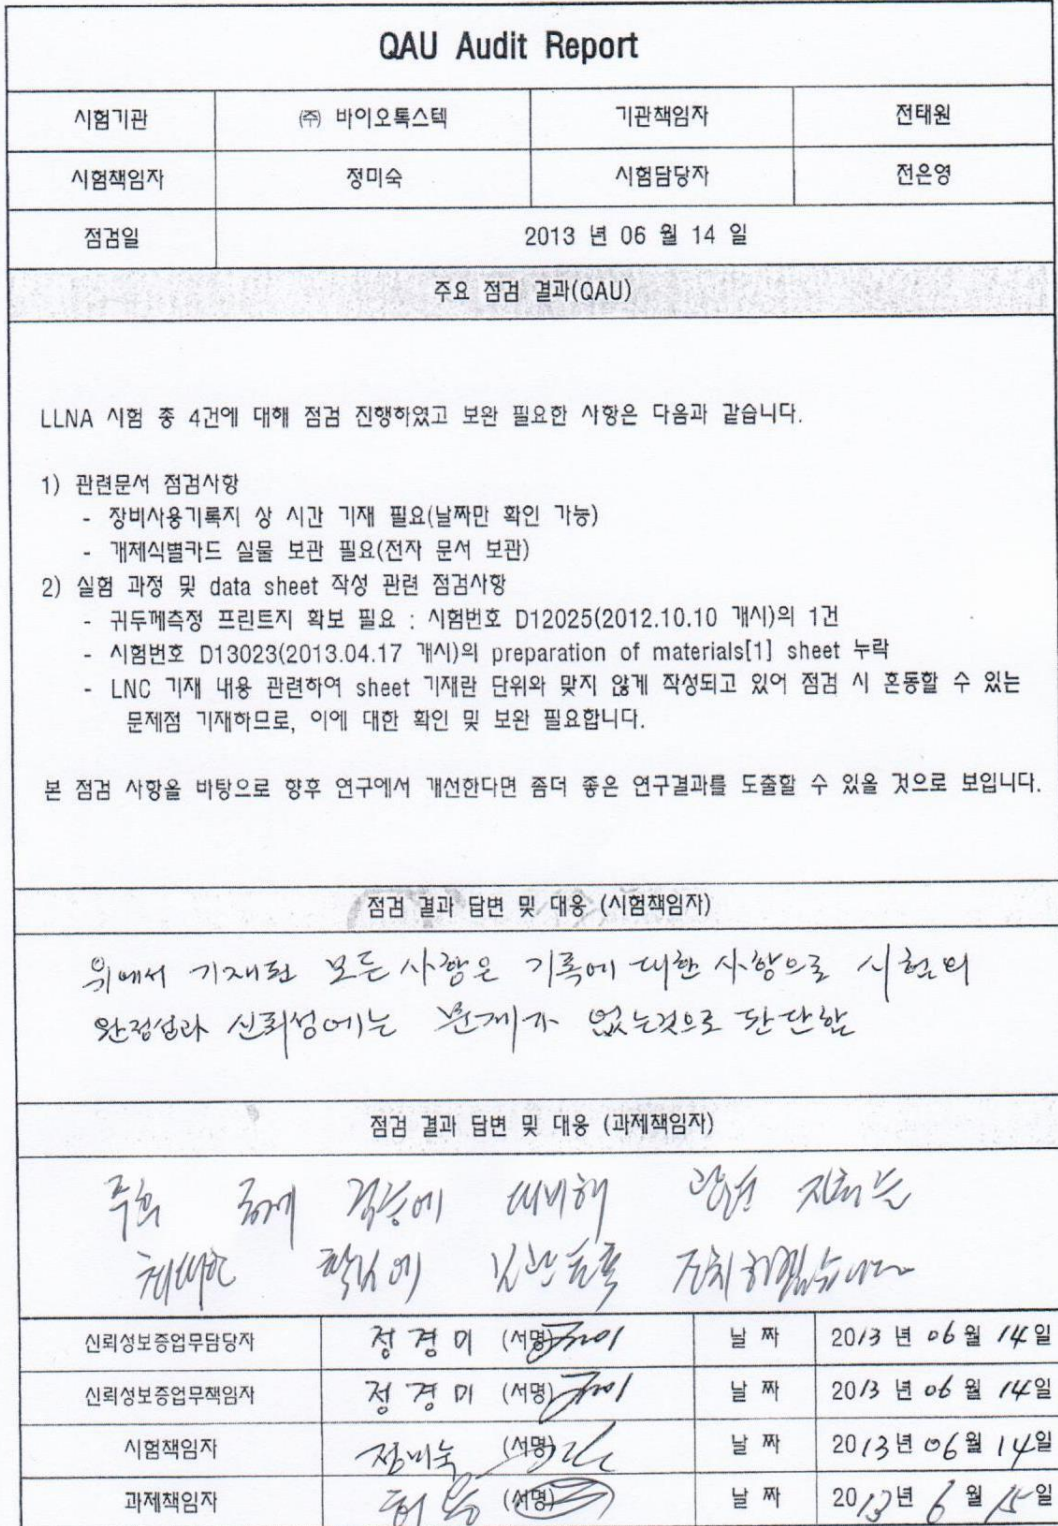 QAU Audit Report
시험기관 ㈜ 바이오톡스텍 기관책임자 전태원
시험책임자 정미숙 시험담당자 전은영
점검일 2013 년 06 월 14 일
주요 점검 결과(QAU)
LLNA 시험 중 4건에 대해 점검 진행하였고 보완 필요한 사항은 다음과 같습니다.
1) 관련문서 점검사항
- 장비사용기록지 상 시간 기재 필요(날짜만 확인 가능)
- 개체식별카드 실물 보관 필요(전자 문서 보관)
2) 실험 과정 및 data sheet 작성 관련 점검사항
- 귀두께측정 프린트지 확보 필요 : 시험번호 D12025(2012.10.10 개시)의 1건
- 시험번호 D13023(2013.04.17 개시)의 preparation of materials[1] sheet 누락
- LNC 기재 내용 관련하여 sheet 기재란 단위와 맞지 않게 작성되고 있어 점검 시 혼동할 수 있는
문제점 기재하므로, 이에 대한 확인 및 보완 필요합니다.
본 점검 사항을 바탕으로 향후 연구에서 개선한다면 좀더 좋은 연구결과를 도출할 수 있을 것으로 보입니다.
점검 결과 답변 및 대응 (시험책임자)
위에서 기재된 모든 사항은 기록에 대한 사항으로 시험의
완정성과 신뢰성에는 문제가 없는것으로 판단함
점검 결과 답변 및 대응 (과제책임자)
추후 검증에 대비해 관련 자료는
보관토록 조치하겠습니다
신뢰성보증업무담당자 정경미 (서명) 날 짜 2013 년 06 월 14 일
신뢰성보증업무책임자 정경미 (서명) 날 짜 2013 년 06 월 14 일
시험책임자 정미숙 (서명) 날 짜 2013 년 06 월 14 일
과제책임자 (서명) 날 짜 2013 년 6 월 15 일